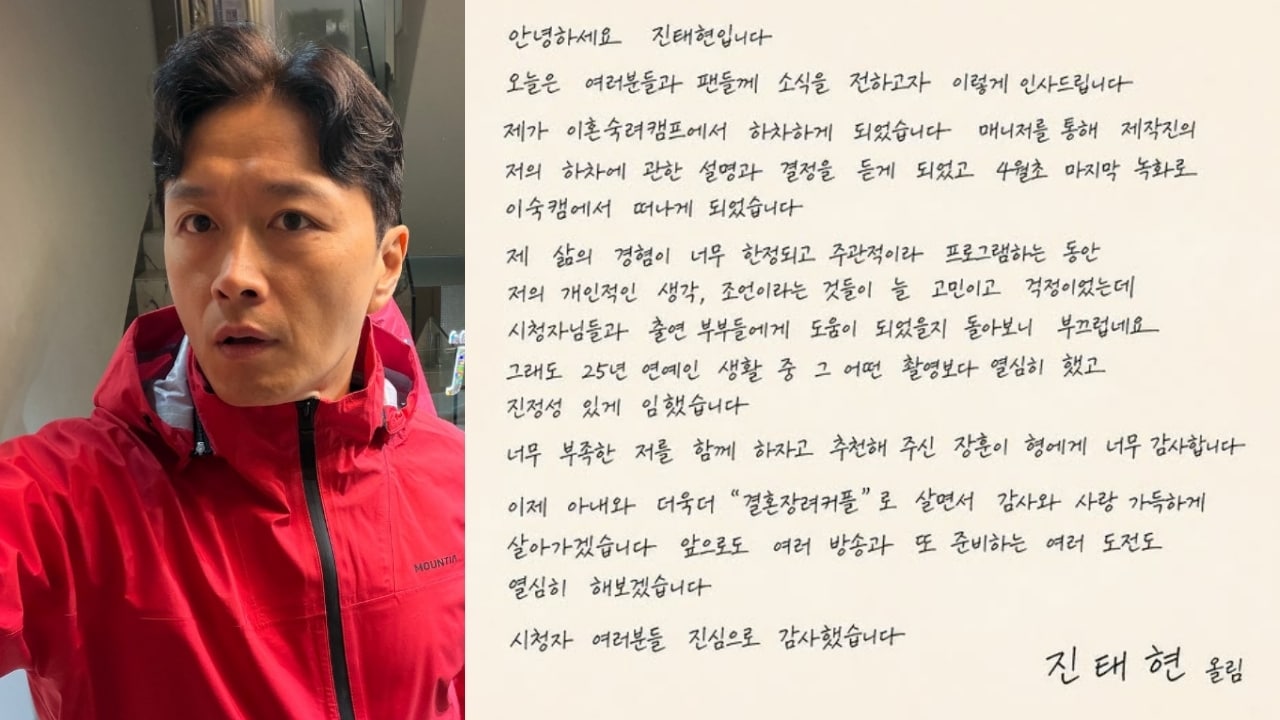 안녕하세요 진태현입니다
오늘은 여러분들과 팬들께 소식을 전하고자 이렇게 인사드립니다
제가 이혼숙려캠프에서 하차하게 되었습니다 매니저를 통해 제작진의
저의 하차에 관한 설명과 결정을 듣게 되었고 4월초 마지막 녹화로
이숙캠에서 떠나게 되었습니다
제 삶의 경험이 너무 한정되고 주관적이라 프로그램하는 동안
저의 개인적인 생각, 조언이라는 것들이 늘 고민이고 걱정이었는데
시청자님들과 출연 부부들에게 도움이 되었을지 돌아보니 부끄럽네요
그래도 25년 연예인 생활 중 그 어떤 촬영보다 열심히 했고
진정성 있게 임했습니다
너무 부족한 저를 함께 하자고 추천해 주신 장훈이 형에게 너무 감사합니다
이제 아내와 더욱더 “결혼장려커플”로 살면서 감사와 사랑 가득하게
살아가겠습니다 앞으로도 여러 방송과 또 준비하는 여러 도전도
열심히 해보겠습니다
시청자 여러분들 진심으로 감사했습니다
진태현 올림
MOUNTIA